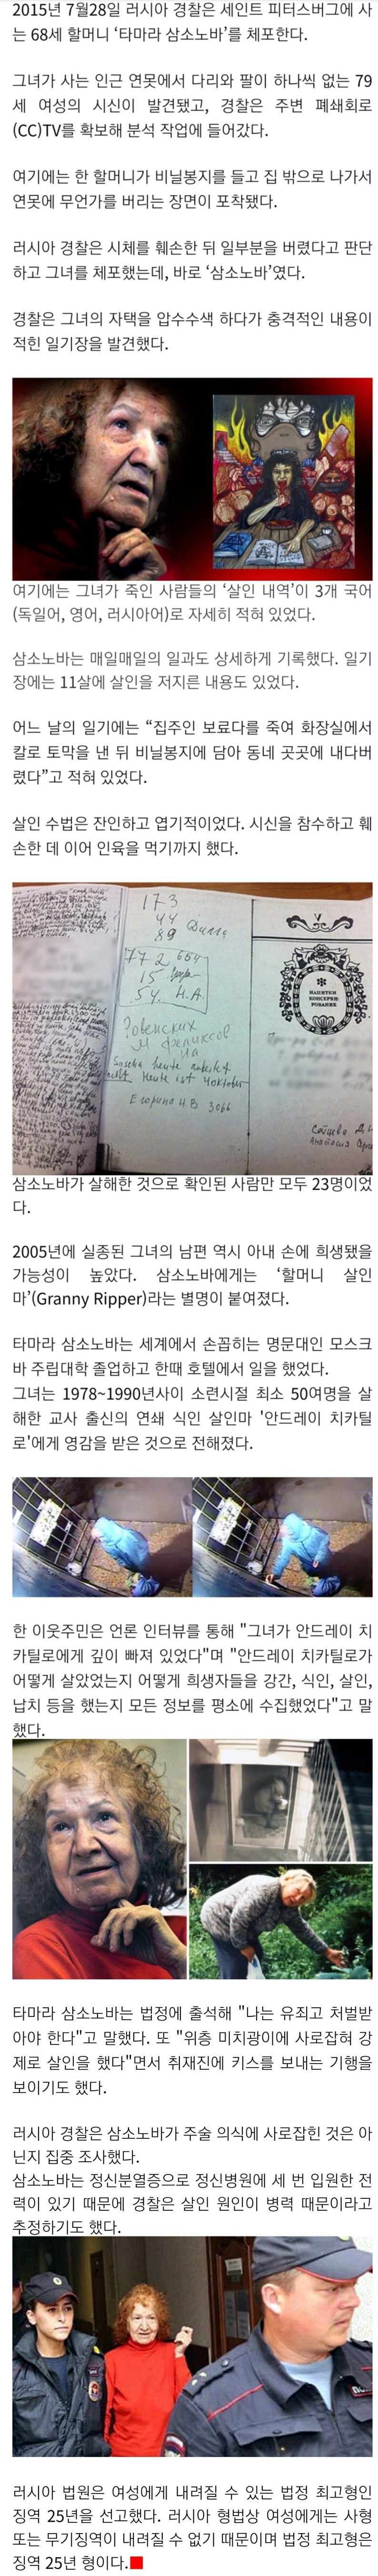 2015년 7월28일 러시아 경찰은 세인트 피터스버그에 사
는 68세 할머니 ‘타마라 삼소노바’를 체포한다.
그녀가 사는 인근 연못에서 다리와 팔이 하나씩 없는 79
세 여성의 시신이 발견됐고, 경찰은 주변 폐쇄회로
(CC)TV를 확보해 분석 작업에 들어갔다.
여기에는 한 할머니가 비닐봉지를 들고 집 밖으로 나가서
연못에 무언가를 버리는 장면이 포착됐다.
러시아 경찰은 시체를 훼손한 뒤 일부분을 버렸다고 판단
하고 그녀를 체포했는데, 바로 ‘삼소노바’였다.
경찰은 그녀의 자택을 압수수색 하다가 충격적인 내용이
적힌 일기장을 발견했다.
여기에는 그녀가 죽인 사람들의 ‘살인 내역’이 3개 국어
(독일어, 영어, 러시아어)로 자세히 적혀 있었다.
삼소노바는 매일매일의 일과도 상세하게 기록했다. 일기
장에는 11살에 살인을 저지른 내용도 있었다.
어느 날의 일기에는 “집주인 보료다를 죽여 화장실에서
칼로 토막을 낸 뒤 비닐봉지에 담아 동네 곳곳에 내다버
렸다”고 적혀 있었다.
살인 수법은 잔인하고 엽기적이었다. 시신을 참수하고 훼
손한 데 이어 인육을 먹기까지 했다.
173
44
89
772
15
54. Н.А.
heute ist
Егорина НВ 3066
НАПИТКИ
КОНСЕРВИ-
РОВАНИЕ
삼소노바가 살해한 것으로 확인된 사람만 모두 23명이었
다.
2005년에 실종된 그녀의 남편 역시 아내 손에 희생됐을
가능성이 높았다. 삼소노바에게는 ‘할머니 살인
마’(Granny Ripper)라는 별명이 붙여졌다.
타마라 삼소노바는 세계에서 손꼽히는 명문대인 모스크
바 주립대학 졸업하고 한때 호텔에서 일을 했었다.
그녀는 1978~1990년사이 소련시절 최소 50여명을 살
해한 교사 출신의 연쇄 식인 살인마 '안드레이 치카틸
로'에게 영감을 받은 것으로 전해졌다.
한 이웃주민은 언론 인터뷰를 통해 "그녀가 안드레이 치
카틸로에게 깊이 빠져 있었다"며 "안드레이 치카틸로가
어떻게 살았었는지 어떻게 희생자들을 강간, 식인, 살인,
납치 등을 했는지 모든 정보를 평소에 수집했었다"고 말
했다.
타마라 삼소노바는 법정에 출석해 "나는 유죄고 처벌받
아야 한다"고 말했다. 또 "위층 미치광이에 사로잡혀 강
제로 살인을 했다"면서 취재진에 키스를 보내는 기행을
보이기도 했다.
러시아 경찰은 삼소노바가 주술 의식에 사로잡힌 것은 아
닌지 집중 조사했다.
삼소노바는 정신분열증으로 정신병원에 세 번 입원한 전
력이 있기 때문에 경찰은 살인 원인이 병력 때문이라고
추정하기도 했다.
러시아 법원은 여성에게 내려질 수 있는 법정 최고형인
징역 25년을 선고했다. 러시아 형법상 여성에게는 사형
또는 무기징역이 내려질 수 없기 때문이며 법정 최고형은
징역 25년 형이다.